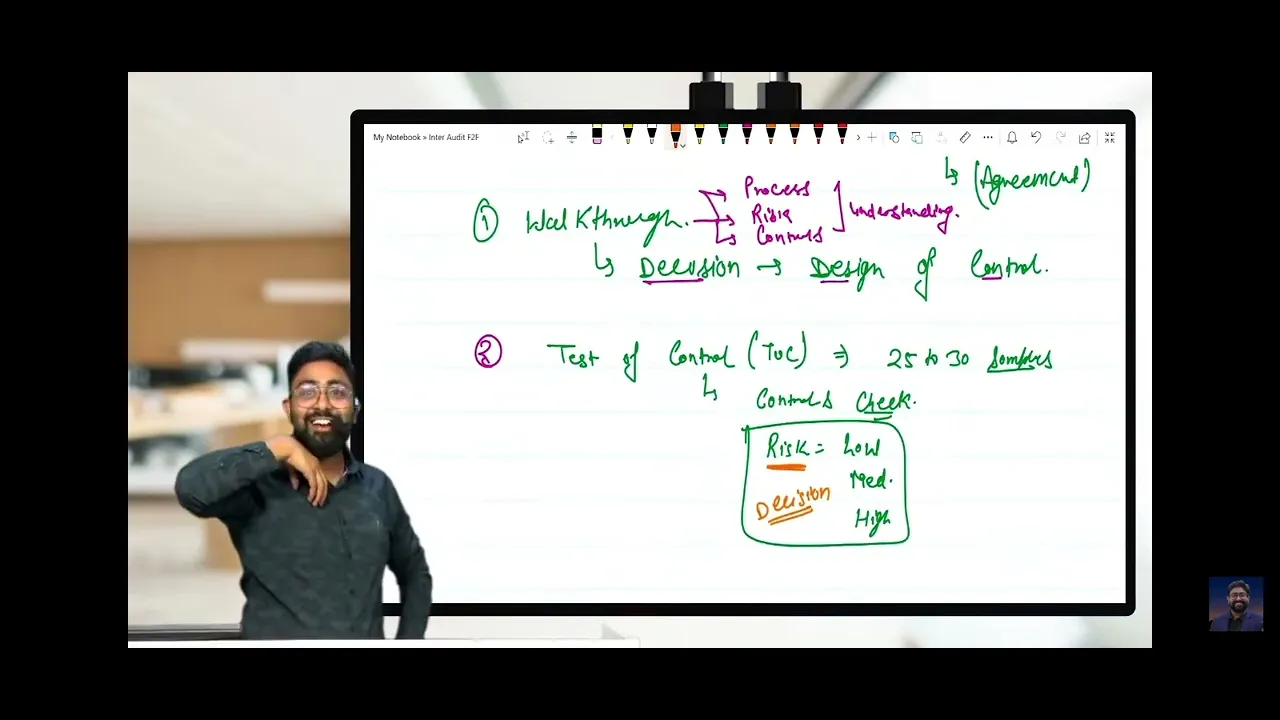 My Notebook » Inter Audit F2F
↳ (Agreement)
① Walkthrough. → Process
→ Risk
→ Controls
understanding.
↳ Decision → Design of Control.
② Test of Control (TOC) ⇒ 25 to 30 Samples
↳ Controls Check.
Risk = Low
Med.
Decision
High